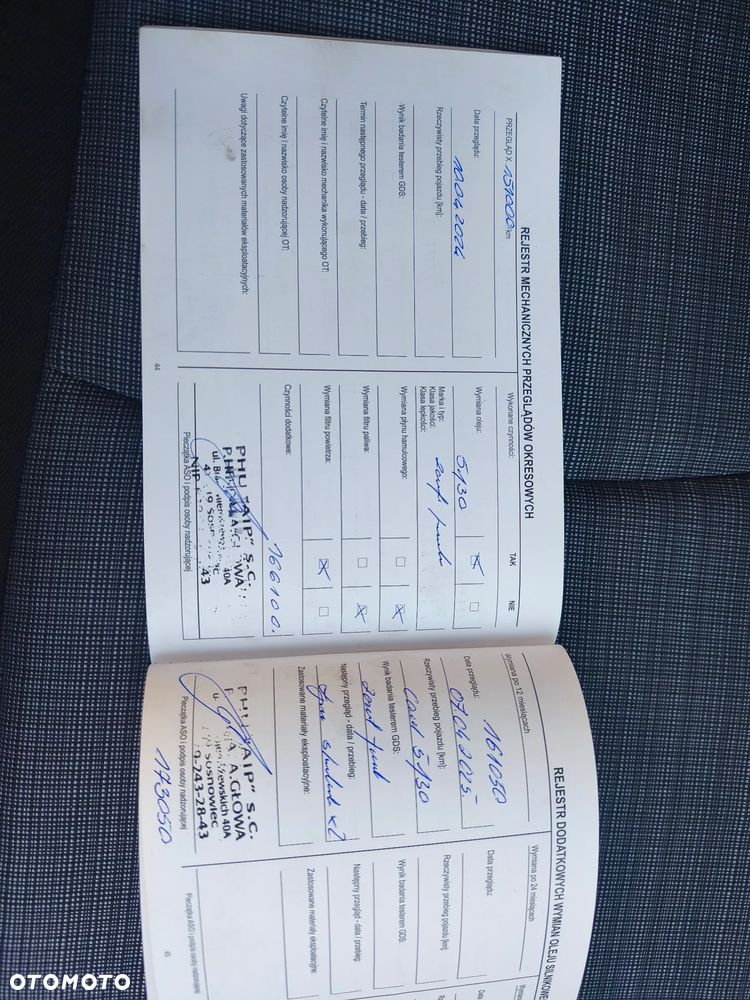 REJESTR MECHANICZNYCH PRZEGLĄDÓW OKRESOWYCH
PRZEGLĄD X 151000 km
Data przeglądu:
10.04.2024
Rzeczywisty przebieg pojazdu [km]:
Wynik badania testerem GDS:
Termin następnego przeglądu - data i przebieg:
Czytelne imię i nazwisko mechanika wykonującego OT:
Czytelne imię i nazwisko osoby nadzorującej OT:
Uwagi dotyczące zastosowanych materiałów eksploatacyjnych:
44
Wykonane czynności: TAK NIE
Wymiana oleju: 5W30
Marka i typ:
Klasa jakości:
Klasa lepkości:
Wymiana płynu hamulcowego:
Wymiana filtru paliwa:
Wymiana filtru powietrza:
Czynności dodatkowe:
166100.
PHU "AIP" S.C.
40A
43
Pieczątka ASO i podpis osoby nadzorującej
REJESTR DODATKOWYCH WYMIAN OLEJU
Wymiana po 12 miesiącach
161050
Data przeglądu:
07.04.2025
Rzeczywisty przebieg pojazdu [km]:
5W30
Wynik badania testerem GDS:
Następny przegląd - data / przebieg:
Zastosowane materiały eksploatacyjne:
PHU "AIP" S.C.
A. GŁOWA
40A
Sosnowiec
9-243-28-43
Pieczątka ASO i podpis osoby nadzorującej
173050
Wymiana po 24 miesiącach
Data przeglądu:
Rzeczywisty przebieg pojazdu [km]:
Wynik badania testerem GDS:
Następny przegląd - data / przebieg:
Zastosowane materiały eksploatacyjne:
Pieczątka ASO i podpis osoby nadzorującej
45
OTOMOTO